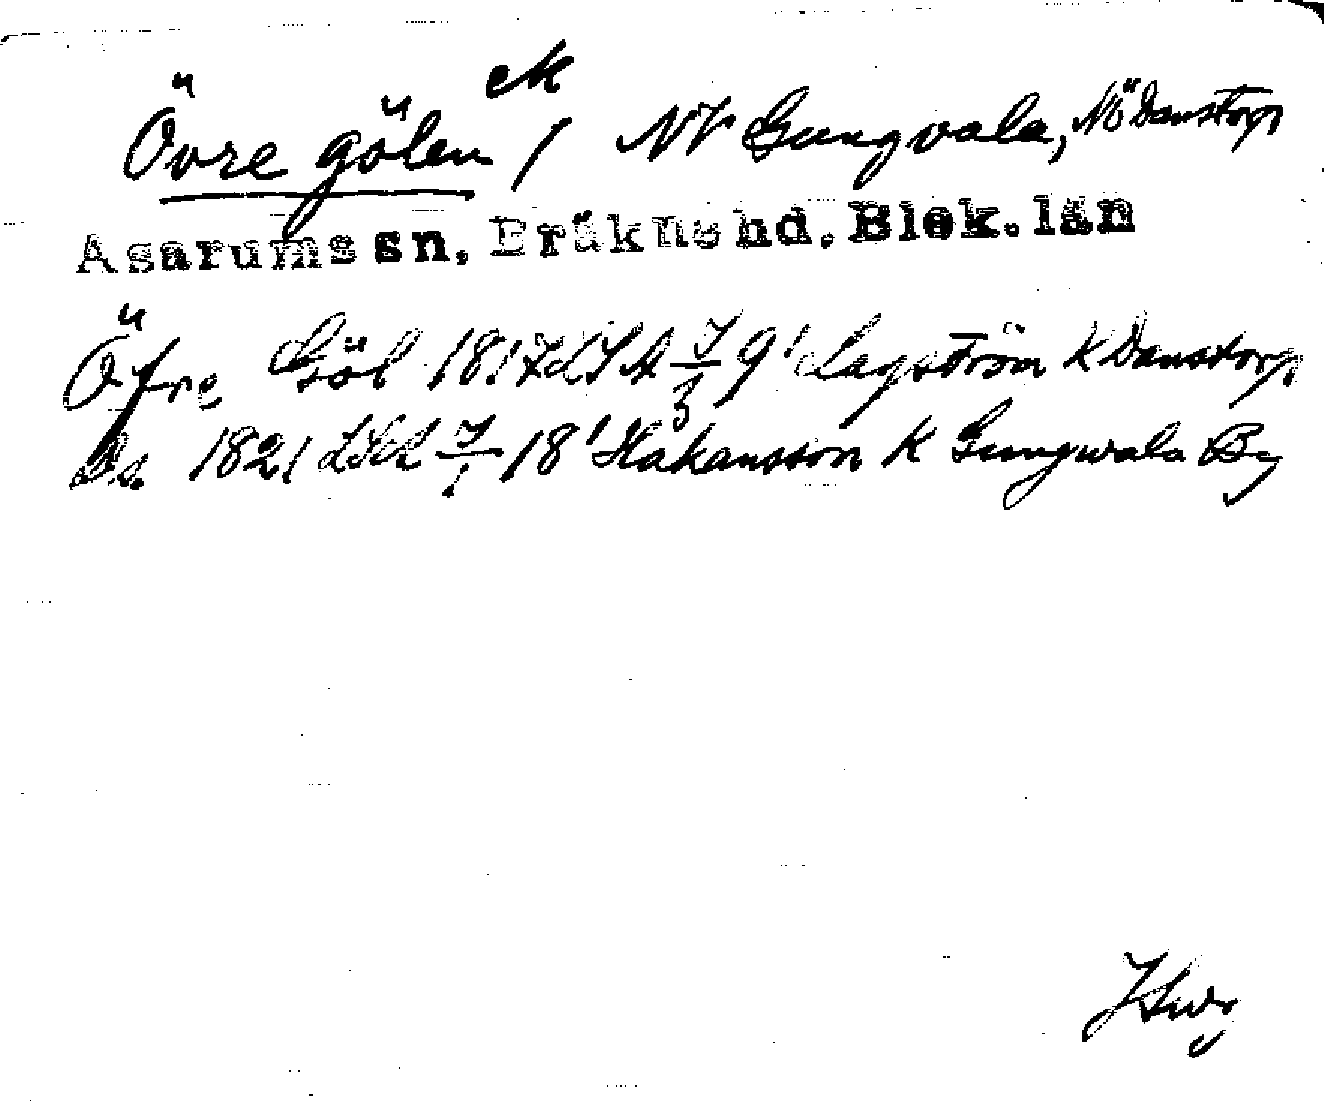 ek
Övre gölen / NV Gungvala, NÖ Danstorp
Asarums sn, Bräkne hd. Blek. län
Öfre Göl 1817 LSA 7/3 9' Lagström K Danstorp
Do 1821 7/1 18' Håkansson K Gungvala By